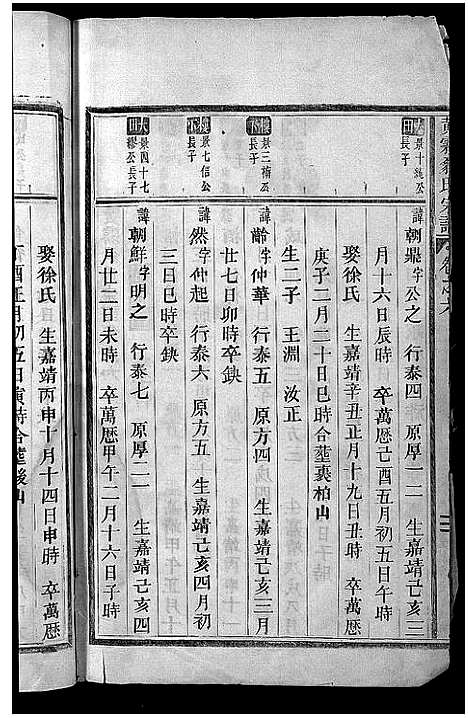 大田
景十純公長子
諱朝鼎字公之　行泰四　原厚一一　生嘉靖己亥三
月十六日辰時　卒萬曆己酉五月初五日午時
娶徐氏　生嘉靖辛丑正月十九日丑時　卒萬曆
庚子二月二十日巳時合塟裹柏山
生二子　王淵　汝正
樓下
景三楠公長子
諱齡字仲華　行泰五　原方四　生嘉靖己亥三月
廿七日卯時卒鈌
樓下
景七信公長子
諱然字仲起　行泰六　原方五　生嘉靖己亥四月初
三日巳時卒鈌
大田
景四十七繆公長子
諱朝鮮字明之　行泰七　原厚二一　生嘉靖己亥四
月廿二日未時　卒萬曆甲午二月十六日子時
娶徐氏　生嘉靖丙申十月十四日申時　卒萬曆
酉正月初五日寅時合塟後山